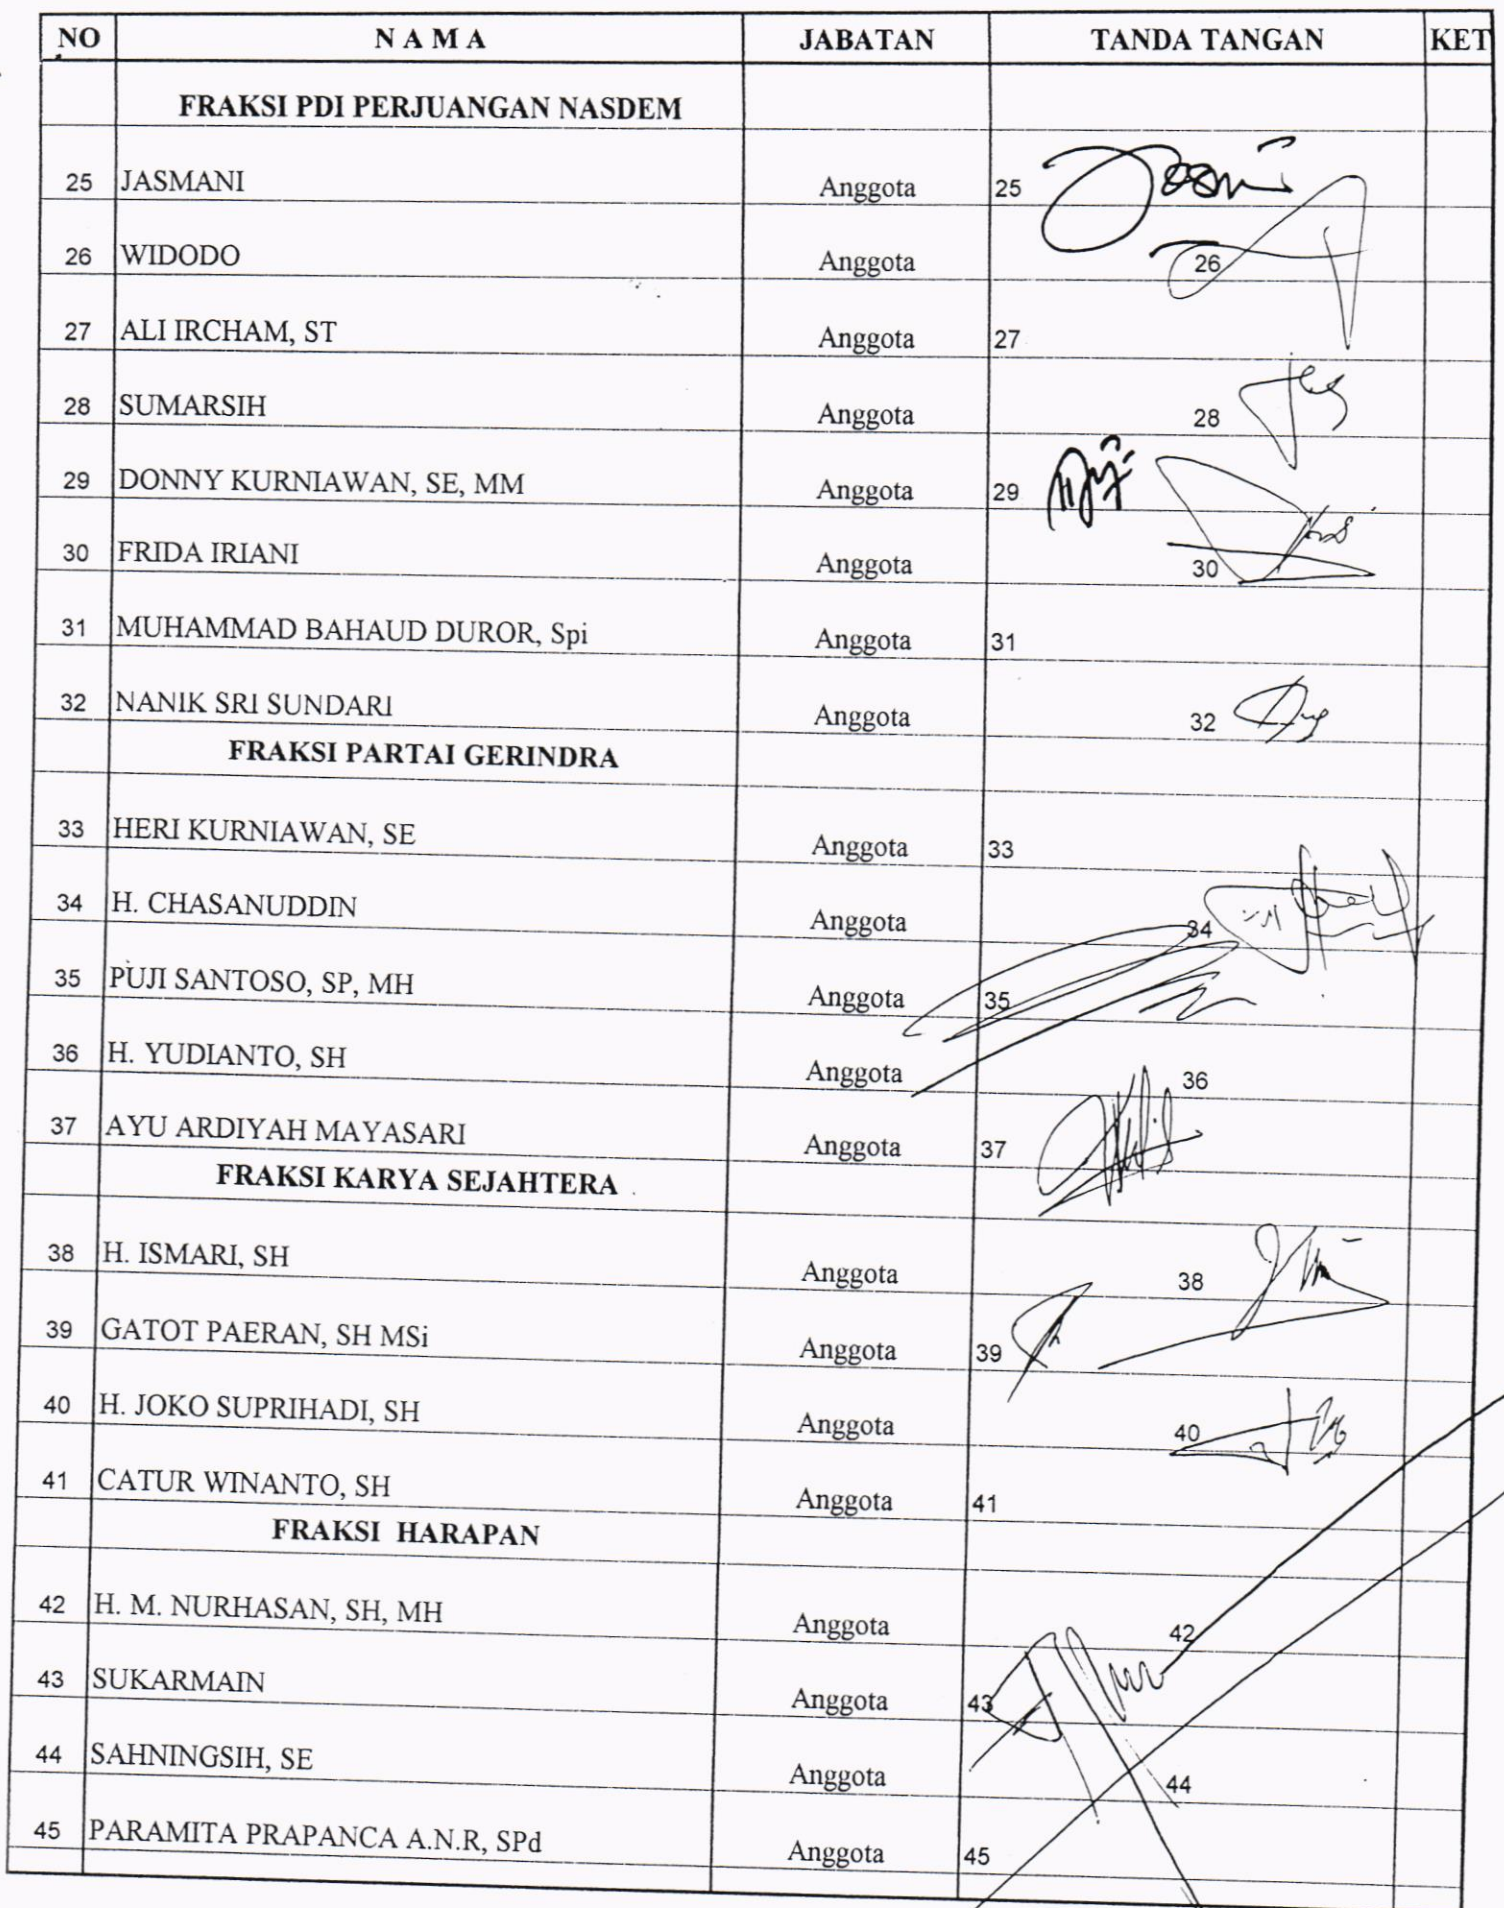 NO N A M A JABATAN TANDA TANGAN KET
FRAKSI PDI PERJUANGAN NASDEM
25 JASMANI Anggota 25
26 WIDODO Anggota 26
27 ALI IRCHAM, ST Anggota 27
28 SUMARSIH Anggota 28
29 DONNY KURNIAWAN, SE, MM Anggota 29
30 FRIDA IRIANI Anggota 30
31 MUHAMMAD BAHAUD DUROR, Spi Anggota 31
32 NANIK SRI SUNDARI Anggota 32
FRAKSI PARTAI GERINDRA
33 HERI KURNIAWAN, SE Anggota 33
34 H. CHASANUDDIN Anggota 34
35 PUJI SANTOSO, SP, MH Anggota 35
36 H. YUDIANTO, SH Anggota 36
37 AYU ARDIYAH MAYASARI Anggota 37
FRAKSI KARYA SEJAHTERA
38 H. ISMARI, SH Anggota 38
39 GATOT PAERAN, SH MSi Anggota 39
40 H. JOKO SUPRIHADI, SH Anggota 40
41 CATUR WINANTO, SH Anggota 41
FRAKSI HARAPAN
42 H. M. NURHASAN, SH, MH Anggota 42
43 SUKARMAIN Anggota 43
44 SAHNINGSIH, SE Anggota 44
45 PARAMITA PRAPANCA A.N.R, SPd Anggota 45